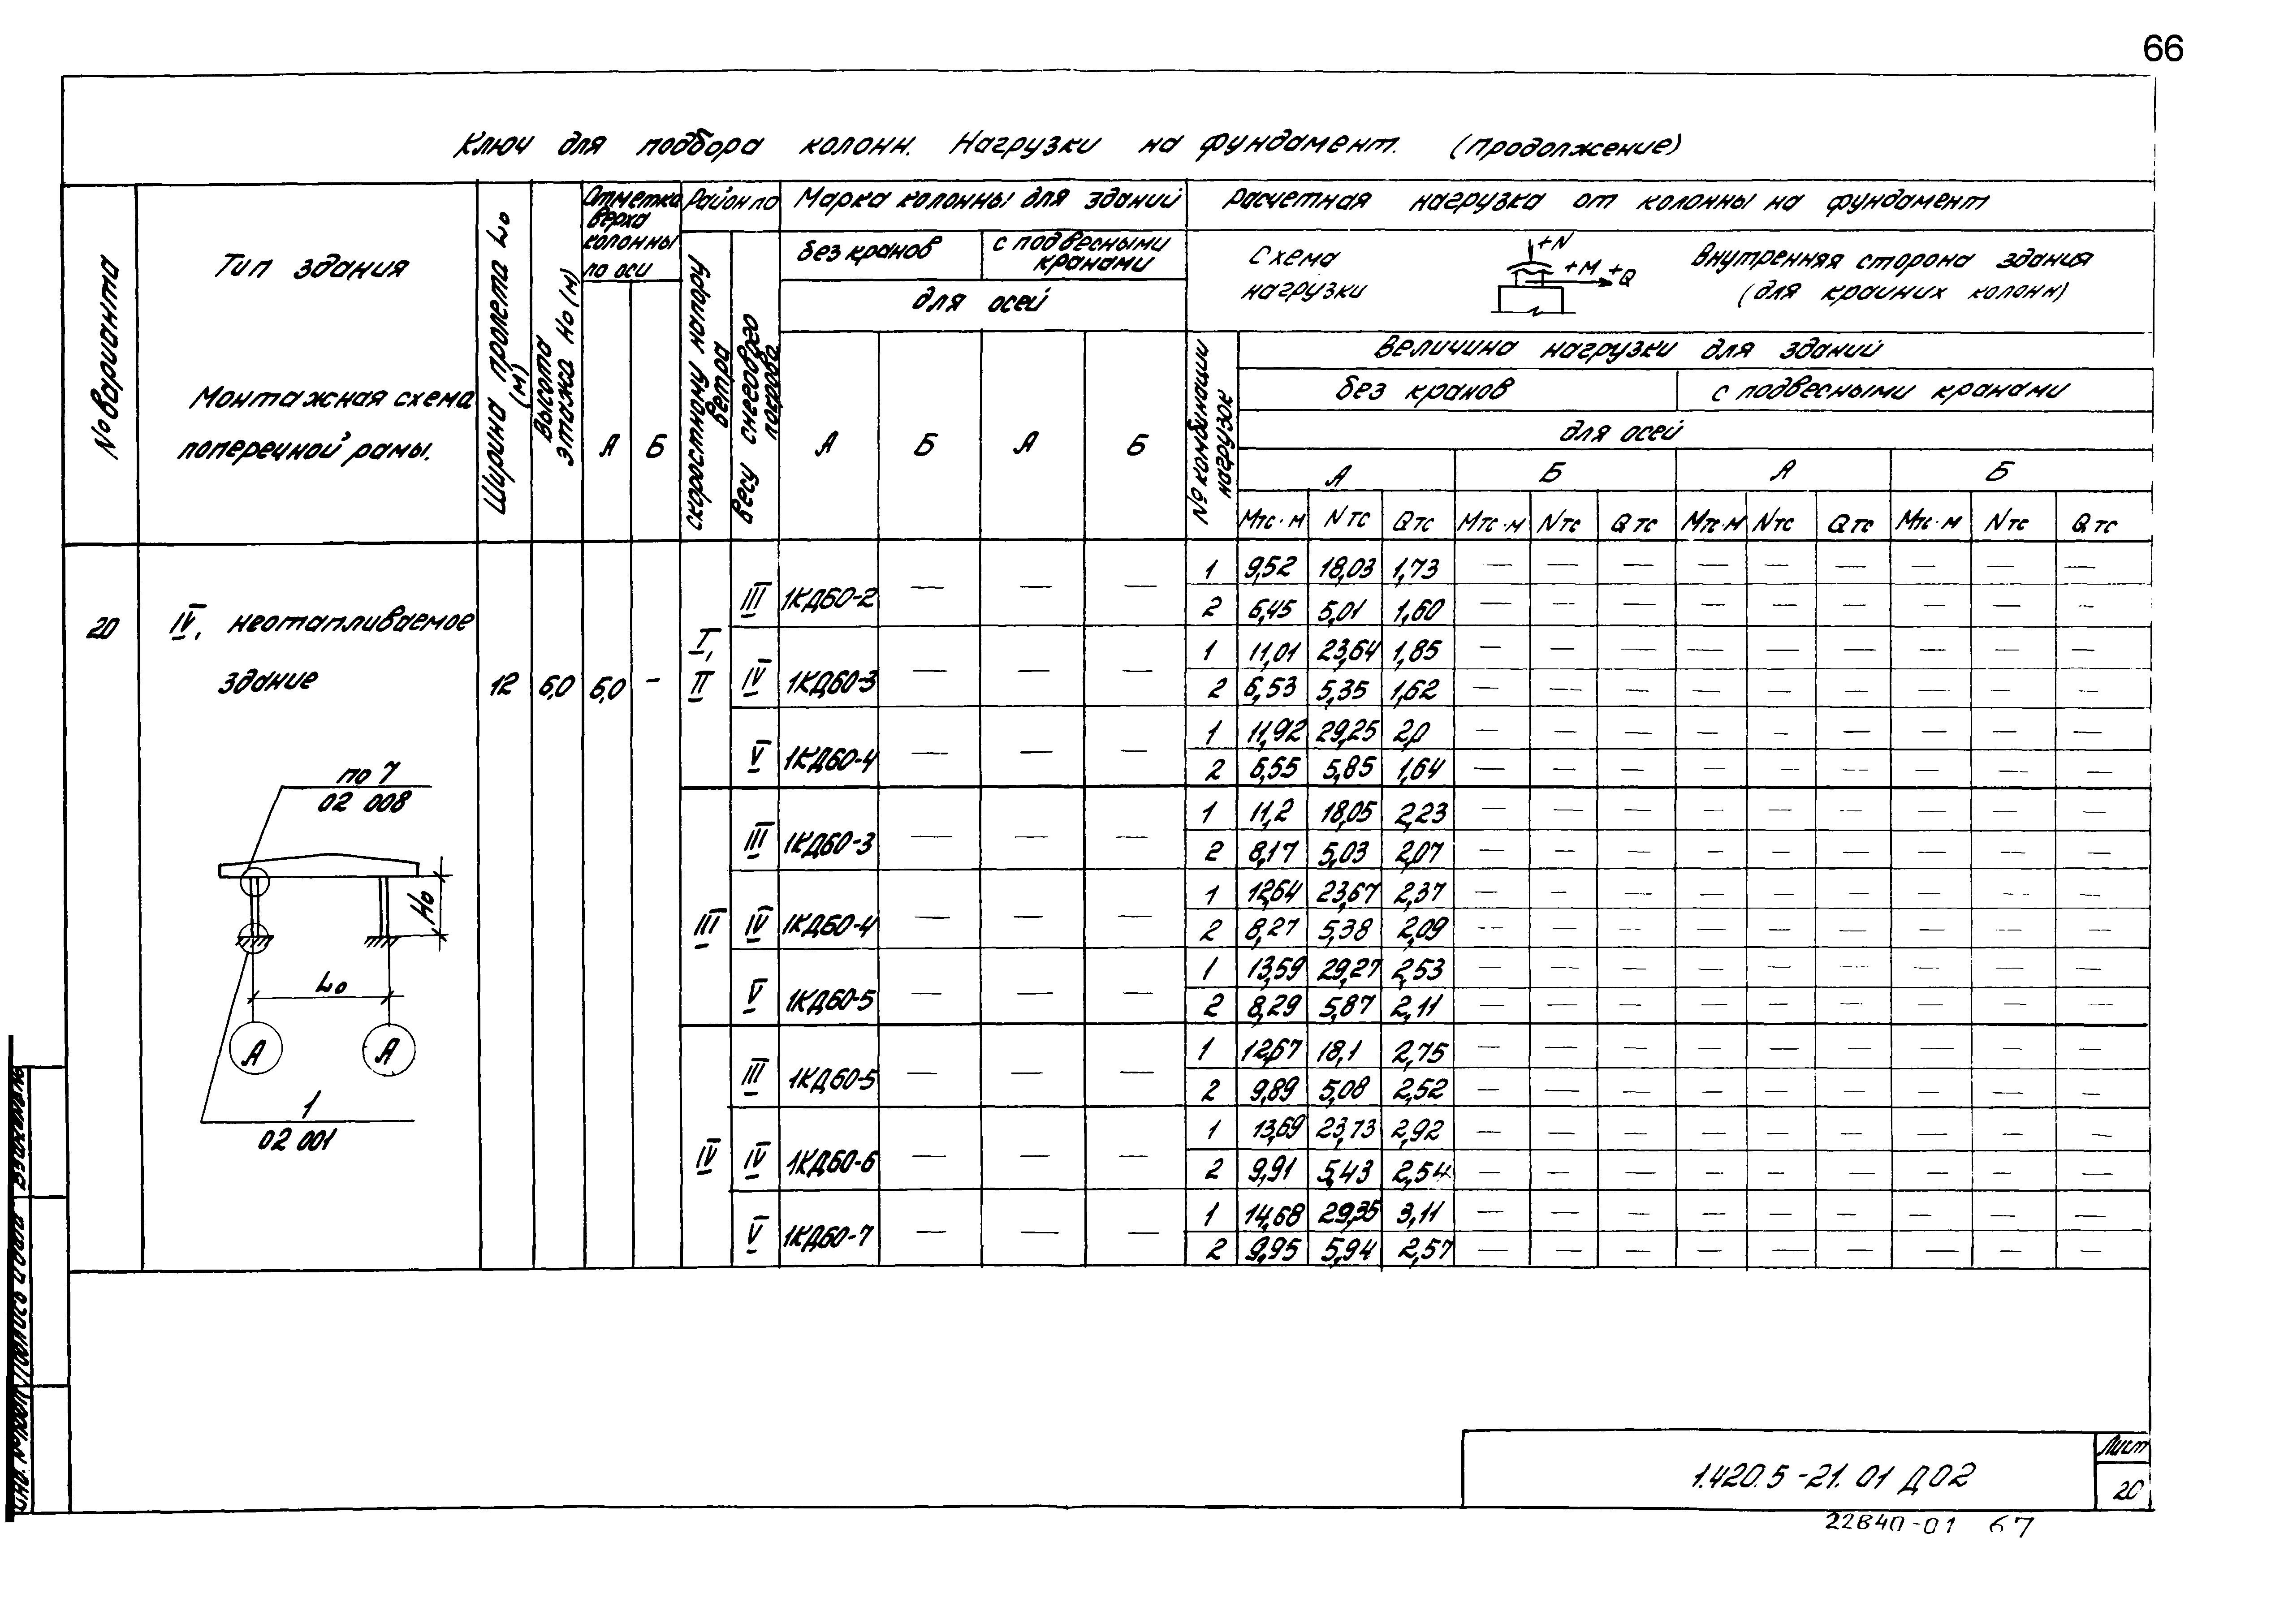 66
Ключ для подбора колонн. Нагрузки на фундамент. (продолжение)
№ варианта
Тип здания
Монтажная схема
поперечной рамы.
Ширина пролета Lо (м)
Высота этажа Hо (м)
Отметка верха колонны по оси
А Б
Район по
скоростному напору ветра
весу снегового покрова
Марка колонны для зданий
без кранов
с подвесными кранами
для осей
А Б А Б
Расчетная нагрузка от колонны на фундамент
Схема нагрузки
+N
+M +Q
Внутренняя сторона здания
(для крайних колонн)
№ комбинации нагрузок
Величина нагрузки для зданий
без кранов с подвесными кранами
для осей
А Б А Б
Mтс·м Nтс Qтс Mтс·м Nтс Qтс Mтс·м Nтс Qтс Mтс·м Nтс Qтс
20
IV, неотапливаемое
здание
12 6,0 6,0 –
по 7
02 008
Hо
Lо
А А
1
02 001
I, II
III 1КД60-2 — — —
1 9,52 18,03 1,73 — — — — — — — — —
2 6,45 5,01 1,60 — — — — — — — — —
IV 1КД60-3 — — —
1 11,01 23,64 1,85 — — — — — — — — —
2 6,53 5,35 1,62 — — — — — — — — —
V 1КД60-4 — — —
1 11,92 29,25 2,0 — — — — — — — — —
2 6,55 5,85 1,64 — — — — — — — — —
III
III 1КД60-3 — — —
1 11,2 18,05 2,23 — — — — — — — — —
2 8,17 5,03 2,07 — — — — — — — — —
IV 1КД60-4 — — —
1 12,64 23,67 2,37 — — — — — — — — —
2 8,27 5,38 2,09 — — — — — — — — —
V 1КД60-5 — — —
1 13,59 29,27 2,53 — — — — — — — — —
2 8,29 5,87 2,11 — — — — — — — — —
IV
III 1КД60-5 — — —
1 12,67 18,1 2,75 — — — — — — — — —
2 9,89 5,08 2,52 — — — — — — — — —
IV 1КД60-6 — — —
1 13,69 23,73 2,92 — — — — — — — — —
2 9,91 5,43 2,54 — — — — — — — — —
V 1КД60-7 — — —
1 14,68 29,35 3,11 — — — — — — — — —
2 9,95 5,94 2,57 — — — — — — — — —
1.420.5-21.01 Д02
Лист
20
22840-01 67